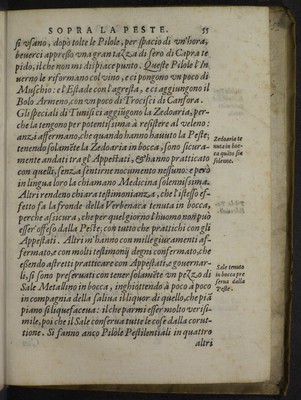 SOPRA LA PESTE. 55
si vsano, dopò tolte le Pilole, per spacio di vn'hora,
beuerci appresso vna gran tazza di sero di Capra te
pido, il che non mi dispiace punto. Queste Pilole l'In
uerno le riformano col vino, e ci pongono vn poco di
Muschio: l'Estade con l'agresta, e ci aggiungono il
Bolo Armeno, con vn poco di Trocisci di Canfora.
Gli speciali di Tunisi ci aggiũgono la Zedoaria, per-
che la tengono per potentissima à resistere al veleno:
anzi affermano, che quando hanno hauuto la Peste,
tenendo solamẽte la Zedoaria in bocca, sono sicura-
mente andati tra gl'Appestati, & hanno pratticato
con quelli, senza sentirne nocumento nessuno: e però
in lingua loro la chiamano Medicina solennissima.
Zedoaria te
nuta in boc
ca quãto sia
solenne.
Altri rendeno chiara testimonianza, che l'istesso ef-
fetto fa la fronde della Verbenaca tenuta in bocca,
perche assicura, che per quel giorno l'huomo non può
esser'offeso dalla Peste, con tutto che prattichi con gli
Appestati. Altri m'hanno con mille giuramenti af-
fermato, e con molti testimonij degni confermato, che
essendo astretti pratticare con Appestati, e gouernar-
li, si sono preseruati con tener solamẽte vn pezzo di
Sale Metallino in bocca, inghiottendo à poco à poco
in compagnia della saliua il liquor di quello, che piã
piano si liquefaceua: il che parmi esser molto verisi-
mile, poi che il Sale conserua tutte le cose dalla corut-
tione. Si fanno anco Pilole Pestilentiali in quattro
Sale tenuto
in bocca pre
serua dalla
Peste.
altri